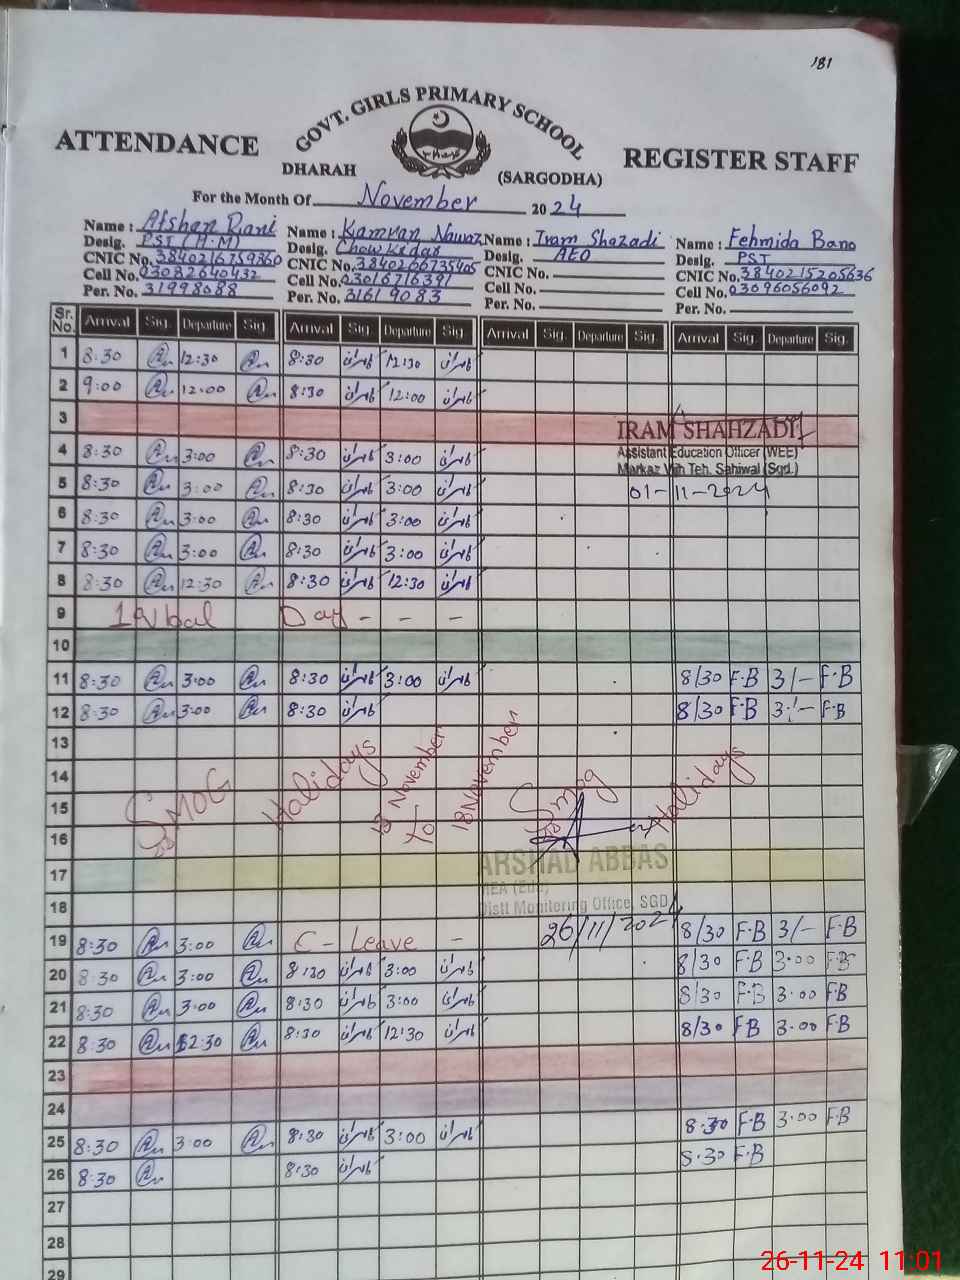 181
GOVT. GIRLS PRIMARY SCHOOL
ATTENDANCE
REGISTER STAFF
DHARAH
(SARGODHA)
For the Month Of November 2024
Name : Afshan Rani Name : Kamran Nawaz Name : Iram Shazadi Name : Fehmida Bano
Desig. PST (H.M) Desig. Chowkedar Desig. AEO Desig. PST
CNIC No. 3840216759860 CNIC No. 3840266735405 CNIC No. CNIC No. 3840215205636
Cell No. 03082640432 Cell No. 03016716391 Cell No. Cell No. 03096056092
Per. No. 31998088 Per. No. 31619083 Per. No. Per. No.
Sr. No. Arrival Sig. Departure Sig. Arrival Sig. Departure Sig. Arrival Sig. Departure Sig. Arrival Sig. Departure Sig.
1 8:30 12:30 8:30 کامران 12:30 کامران
2 9:00 12:00 8:30 کامران 12:00 کامران
3
IRAM SHAHZADI
4 8:30 3:00 8:30 کامران 3:00 کامران
Assistant Education Officer (WEE)
Teh. Sahiwal (Sgd.)
5 8:30 3:00 8:30 کامران 3:00 کامران
01-11-2024
6 8:30 3:00 8:30 کامران 3:00 کامران
7 8:30 3:00 8:30 کامران 3:00 کامران
8 8:30 12:30 8:30 کامران 12:30 کامران
9 Iqbal Day - - -
10
11 8:30 3:00 8:30 کامران 3:00 کامران 8/30 F.B 3/- F.B
12 8:30 3:00 8:30 کامران 8/30 F.B 3/- F.B
13
14
15
16
17
18
SMOG Halidays 13 November To 18 November Smog Halidays
ARSHAD ABBAS
MEA (Edu)
Distt Monitering Office, SGD
26/11/2024
19 8:30 3:00 C - Leave - 8/30 F.B 3/- F.B
20 8:30 3:00 8:30 کامران 3:00 کامران 8/30 F.B 3:00 F.B
21 8:30 3:00 8:30 کامران 3:00 کامران 8/30 F.B 3:00 F.B
22 8:30 12:30 8:30 کامران 12:30 کامران 8/30 F.B 3:00 F.B
23
24
25 8:30 3:00 8:30 کامران 3:00 کامران 8:30 F.B 3:00 F.B
26 8:30 8:30 کامران 8:30 F.B
27
28
29
26-11-24 11:01